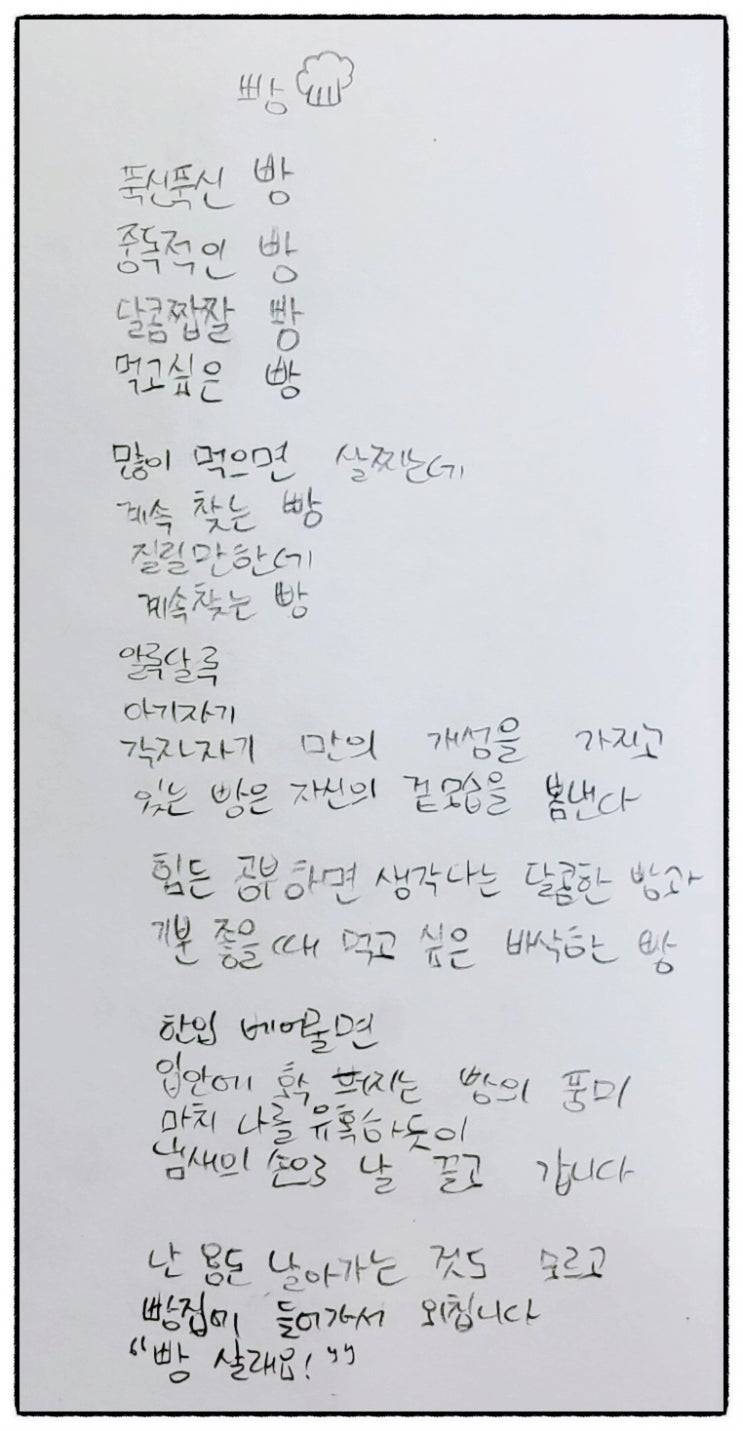 빵
푹신푹신 빵
중독적인 빵
달콤짭짤 빵
먹고싶은 빵
많이 먹으면 살찌는데
계속 찾는 빵
질릴만한데
계속찾는 빵
알록달록
아기자기
각자자기 만의 개성을 가지고
있는 빵은 자신의 겉모습을 봄낸다
힘든 공부하면 생각나는 달콤한 빵과
기분 좋을 때 먹고 싶은 바삭한 빵
한입 베어물면
입안에 확 퍼지는 빵의 풍미
마치 나를 유혹하듯이
냄새의 손으로 날 끌고 갑니다
난 용돈 날아가는 것도 모르고
빵집에 들어가서 외칩니다
“빵 살래요!”